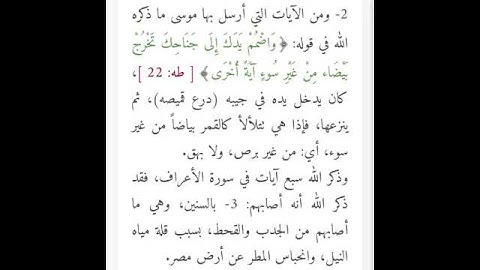 2- ومن الآيات التي أرسل بها موسى ما ذكره
الله في قوله: ﴿ وَاضْمُمْ يَدَكَ إِلَى جَنَاحِكَ تَخْرُجْ
بَيْضَاء مِنْ غَيْرِ سُوءٍ آيَةً أُخْرَى﴾ [ طه: 22 ]،
كان يدخل يده في جيبه (درع قميصه)، ثم
ينزعها، فإذا هي تتلألأ كالقمر بياضاً من غير
سوء، أي: من غير برص، ولا بهق.
وذكر الله سبع آيات في سورة الأعراف، فقد
ذكر الله أنه أصابهم: 3- بالسنين، وهي ما
أصابهم من الجدب والقحط، بسبب قلة مياه
النيل، وانحباس المطر عن أرض مصر.